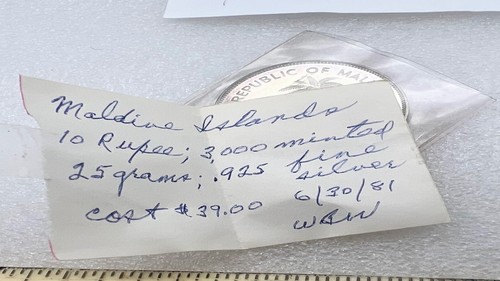 REPUBLIC OF MAL
Maldive Islands
10 Rupee; 3,000 minted
25 grams; .925 fine
silver
cost $39.00 6/30/81
WBW